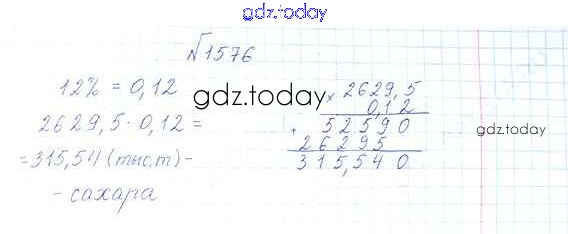 gdz.today
√1576
12% = 0,12
2629,5 · 0,12 =
= 315,54 (тыс.т) -
- сахара
× 2629,5
0,12
+ 52590
26295
315,540
gdz.today
gdz.today